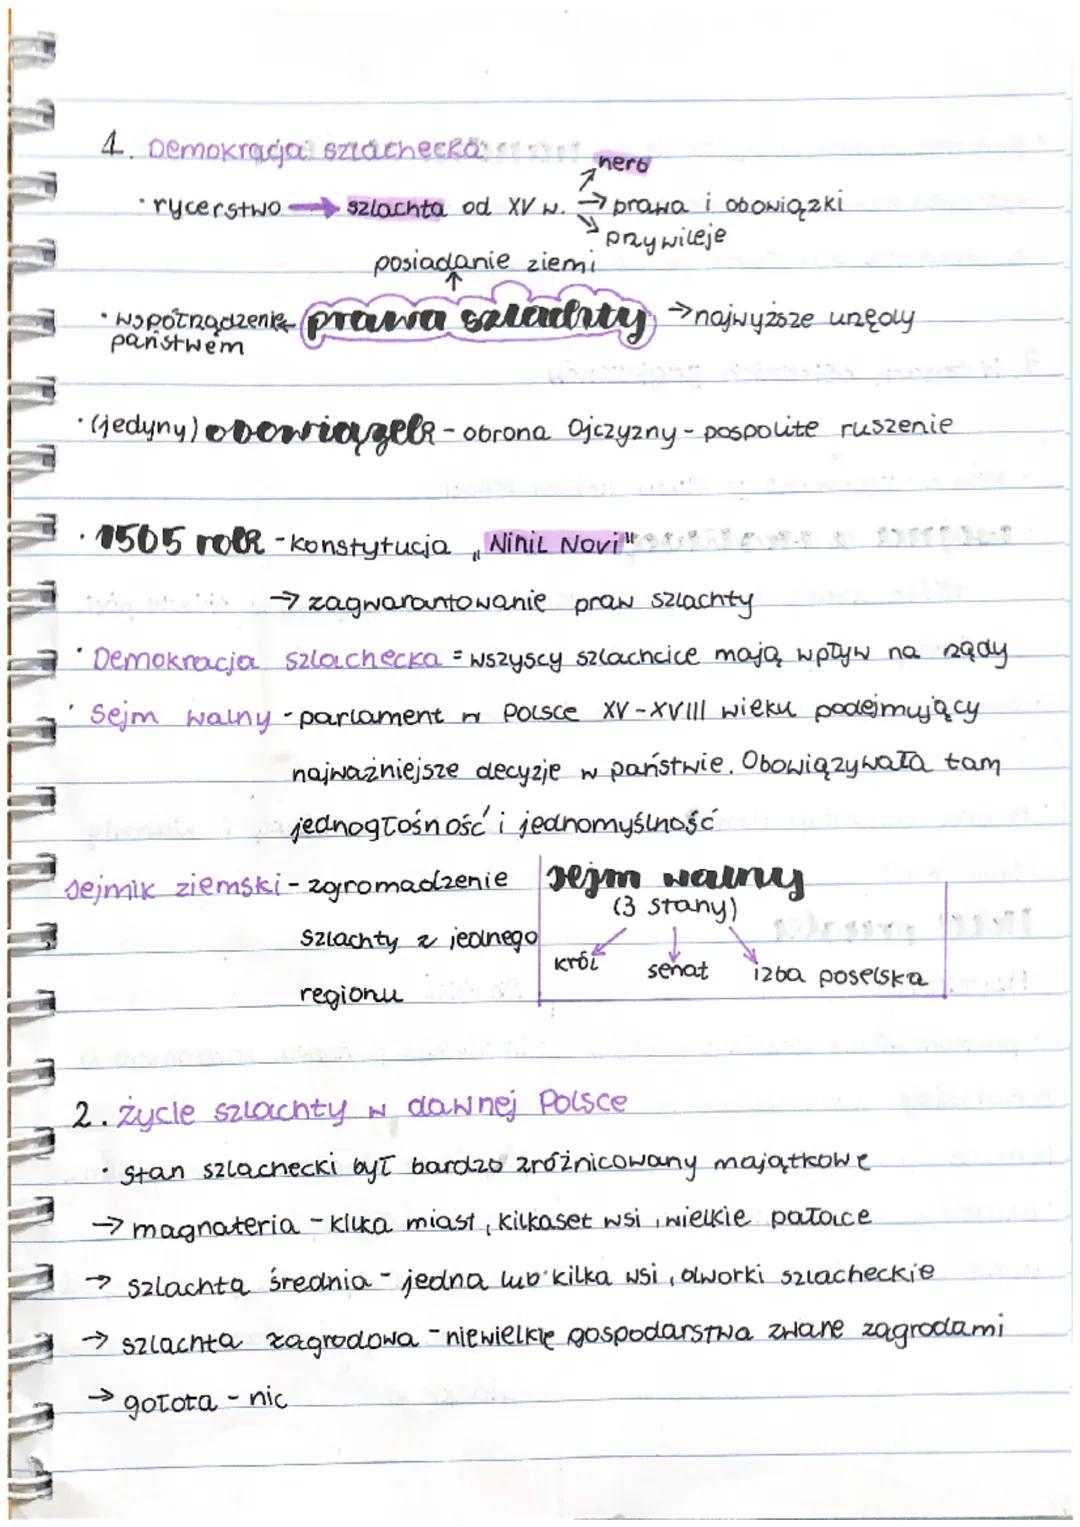 1. Demokracja szlachecka
herb
• rycerstwo → szlachta od XV w. → prawa i obowiązki
przywileje
posiadanie ziemi
• współrządzenie państwem prawa szlachty → najwyższe urzędy
• (jedyny) obowiązek - obrona Ojczyzny - pospolite ruszenie
• 1505 rok - konstytucja „Nihil Novi"
→ zagwarantowanie praw szlachty
• Demokracja szlachecka = wszyscy szlachcice mają wpływ na rządy
• Sejm walny - parlament w Polsce XV-XVIII wieku podejmujący
najważniejsze decyzje w państwie. Obowiązywała tam
jednogłośność i jednomyślność
Sejmik ziemski - zgromadzenie
szlachty z jednego
regionu
sejm walny
(3 stany)
król senat izba poselska
2. życie szlachty w dawnej Polsce
• stan szlachecki był bardzo zróżnicowany majątkowe
→ magnateria - kilka miast, kilkaset wsi, wielkie pałace
→ szlachta średnia - jedna lub kilka wsi, dworki szlacheckie
→ szlachta zagrodowa - niewielkie gospodarstwa zwane zagrodami
→ gołota - nic